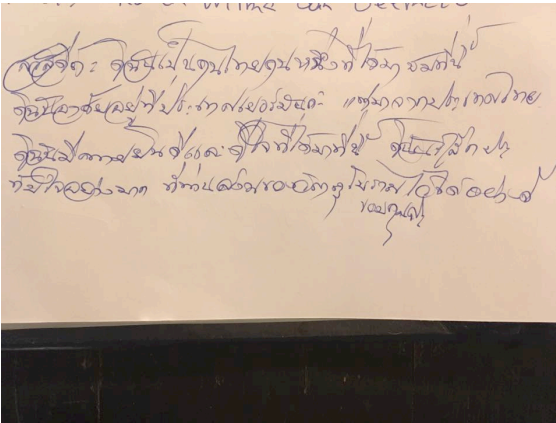 สวัสดีค่ะ ดิฉันเป็นคนไทยคนหนึ่งที่ได้มาชมที่นี่
ดิฉันอาศัยอยู่ที่ประเทศเยอรมันค่ะ แต่มาจากประเทศไทย
ดิฉันมีความยินดีและดีใจที่ได้มาที่นี่ ดิฉันรู้สึกประ
ทับใจอย่างมาก ที่ท่าน ไว้ได้อย่างดี
ขอบคุณค่ะ